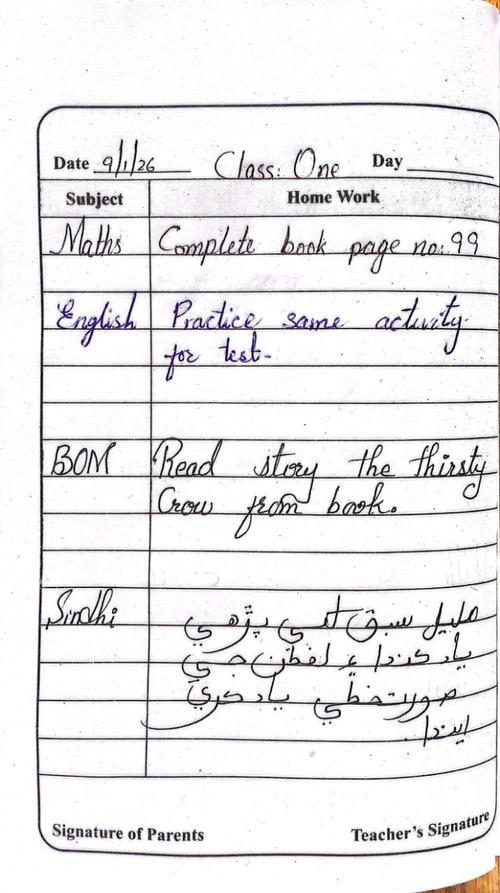 Date 9/1/26 Class: One Day
Subject Home Work
Maths Complete book page no: 99
English Practice same activity
for test.
BOM Read story the thirsty
Crow from book.
Sindhi مليل سبق کي پڙهي
ياد ڪندا ۽ لفظن جي
صورتخطي ياد ڪري
ايندا.
Signature of Parents Teacher's Signature